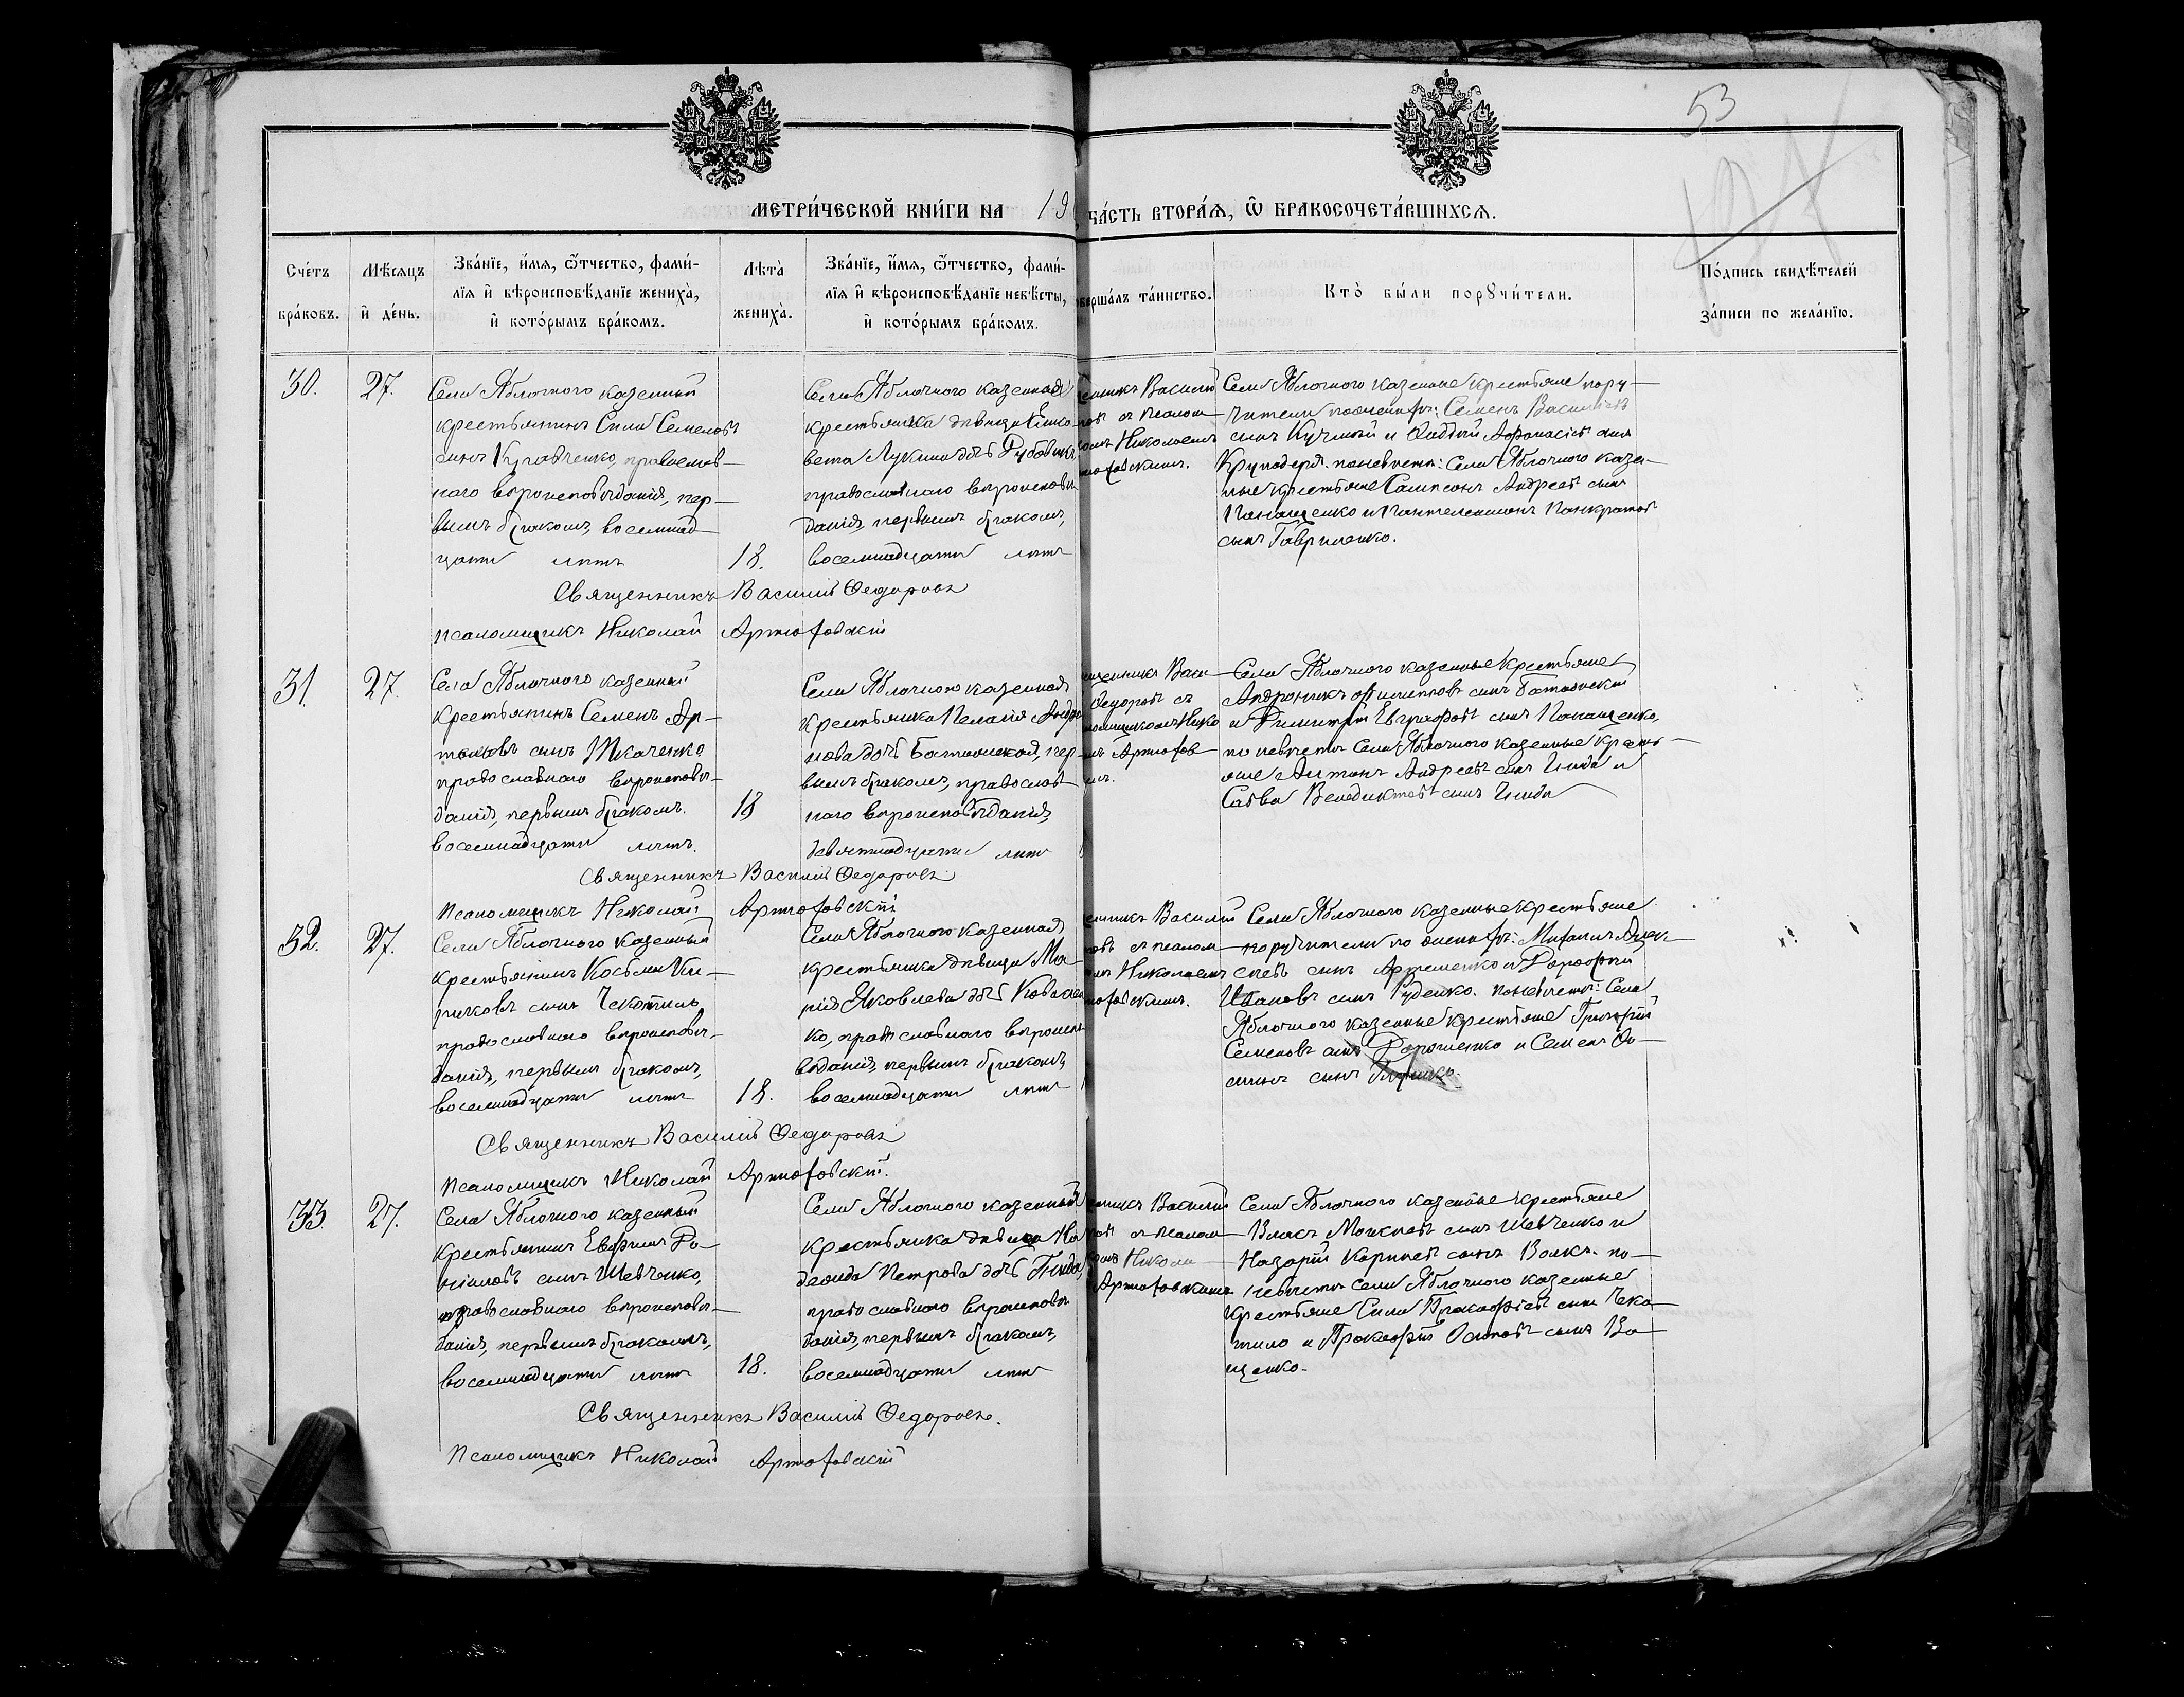 53
МЕТРИ́ЧЕСКОЙ КНИ́ГИ НА 19
ЧА́СТЬ ВТОРА́Ѧ, Ѽ БРАКОСОЧЕТА́ВШИХСѦ.
Сче́тъ бра́ковъ.
Мѣ́сѧцъ и҆ де́нь.
Зва́нїе, и҆́мѧ, ѻ҆́тчество, фами́-
лїѧ и҆ вѣроисповѣ́данїе жениха̀,
и҆ кото́рымъ бра́комъ.
Лѣта̀ жениха̀.
Зва́нїе, и҆́мѧ, ѻ҆́тчество, фами́-
лїѧ и҆ вѣроисповѣ́данїе невѣ́сты,
и҆ кото́рымъ бра́комъ.
вершалъ та́инство.
Кто̀ бы́ли порꙋчи́тели.
По́дпись свидѣ́телей
за́писи по жела́нїю.
30.
27.
Села Яблочного казенный
крестьянинъ Сила Семеновъ
сынъ Кравченко, православ-
наго вѣроисповѣданія, пер-
вымъ бракомъ, восемнад-
цати лѣтъ
18.
Села Яблочного казенная
крестьянка дѣвица Елиса-
вета Лукина дочь
православнаго вѣроисповѣ
данія, первымъ бракомъ,
восемнадцати лѣтъ
Василій
съ псалом
Николаемъ
Села Яблочного казенные крестьяне пору-
чители по женихѣ: Семенъ Васильевъ
сынъ и Афанасіевъ сынъ
по невѣстѣ: Села Яблочного казен-
ные крестьяне Сампсонъ Андреевъ сынъ
Панащенко и Пантелеимонъ Панкратовъ
сынъ Гавриленко.
Священникъ Василій Федоровъ
Псаломщикъ Николай Артюховскій
31.
27.
Села Яблочного казенный
крестьянинъ Семенъ Ар-
сынъ Ткаченко
православнаго вѣроисповѣ-
данія, первымъ бракомъ.
восемнадцати лѣтъ.
18
Села Яблочного казенная
крестьянка Пелагія
нова дочь пер-
вымъ бракомъ, православ-
наго вѣроисповѣданія,
девятнадцати лѣтъ
Васи
Федоровъ съ
Нико
Артюхов
Села Яблочного казенные крестьяне
Андроникъ сынъ
и Димитрій Евграфовъ сынъ Панащенко,
по невѣстѣ Села Яблочного казенные крест
яне Антонъ Андреевъ сынъ и
Савва Венедиктовъ сынъ
Священникъ Василій Федоровъ
Псаломщикъ Николай Артюховскій
32.
27.
Села Яблочного казенный
крестьянинъ Косьма Ки-
риковъ сынъ Чекотило
православнаго вѣроисповѣ-
данія, первымъ бракомъ,
восемнадцати лѣтъ
18.
Села Яблочного казенная
крестьянка дѣвица Ма-
рія Яковлева дочь Ковален
ко, православнаго вѣроиспо
вѣданія, первымъ бракомъ,
восемнадцати лѣтъ
Василій
съ псалом
Николаемъ
Села Яблочного казенные крестьяне
поручители по женихѣ: Михаилъ Алек-
сѣевъ сынъ Артеменко и
Ивановъ сынъ Руденко. по невѣстѣ: Села
Яблочного казенные крестьяне Григорій
Семеновъ сынъ Дорошенко и Семенъ
сынъ
Священникъ Василій Федоровъ
Псаломщикъ Николай Артюховскій.
33.
27.
Села Яблочного казенный
крестьянинъ Ефимъ Да-
ніиловъ сынъ Шевченко,
православнаго вѣроисповѣ-
данія, первымъ бракомъ,
восемнадцати лѣтъ
18.
Села Яблочного казенный
крестьянка дѣвица На
дежда Петрова дочь
православнаго вѣроисповѣ
данія, первымъ бракомъ,
восемнадцати лѣтъ
Василій
съ псалом
Никола
Артюховскимъ
Села Яблочного казенные крестьяне
Власъ Моисеевъ сынъ Шевченко и
Назарій Корнеевъ сынъ Волкъ. по-
невѣстѣ Села Яблочного казенные
крестьяне Сила Прокофіевъ сынъ Чеко-
тило и Прокофій сынъ Ва-
щенко.
Священникъ Василій Федоровъ.
Псаломщикъ Николай Артюховскій